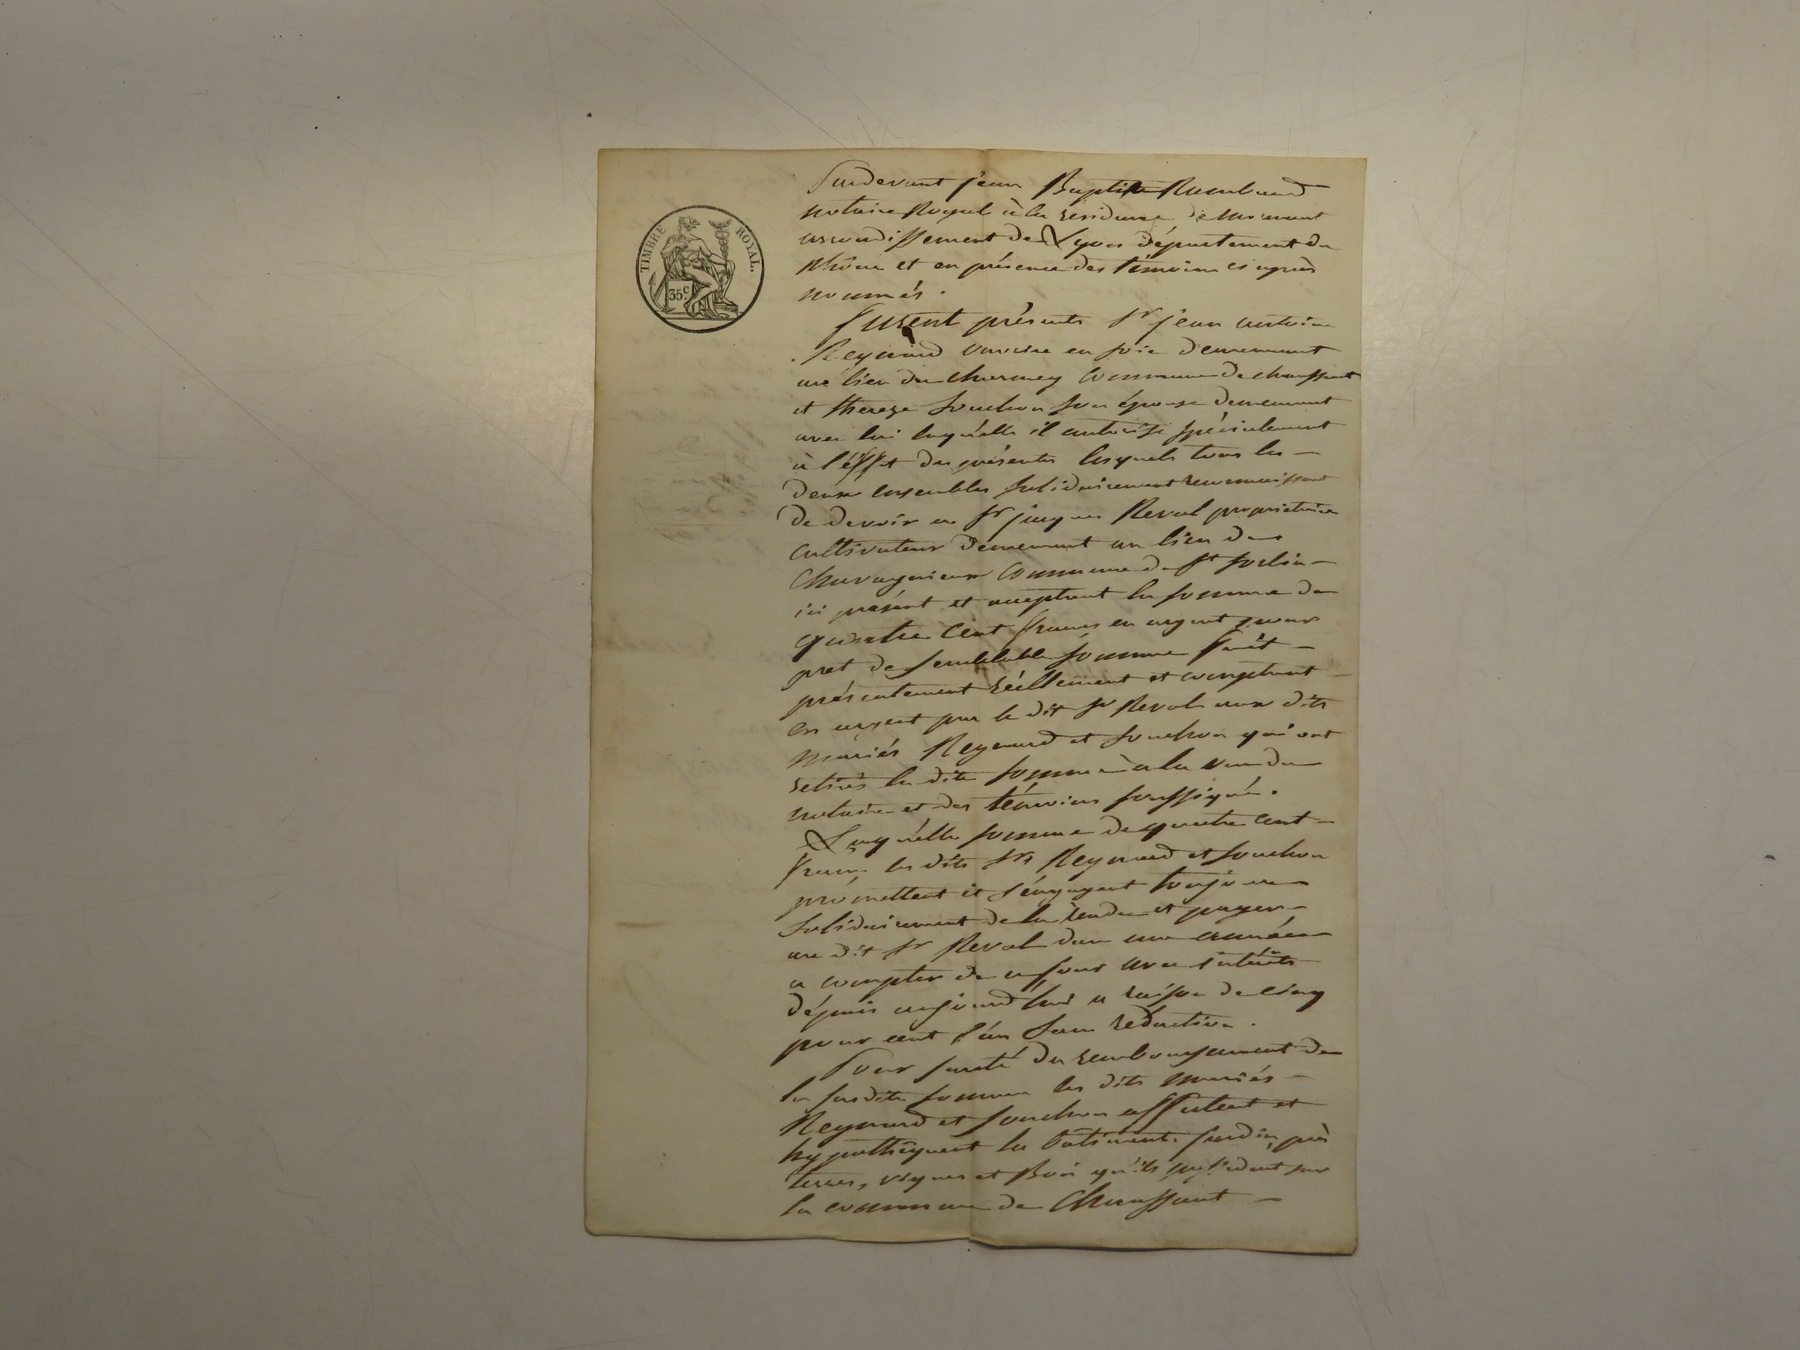 TIMBRE ROYAL.
35c
Pardevant jean Baptiste Rambaud
notaire Royal à la residence de Mornant
arrondissement de Lyon département du
Rhône et en présence des témoins ci après
nommés.
furent présents Sr jean antoine
Reynard ouvrier en soie demeurant
au lieu du Chermey Commune de chaussant
et thereze Souchon son épouse demeurant
avec lui laqu'elle il autorise spécialement
à l'éffet des présentes lesquels tous les
deux ensembles solidairement reconnaissent
de devoir au Sr jacques Reval propriétaire
Cultivateur demeurant au lieu de
Commune de St Sorlin
ici présent et acceptant la somme de
quatre Cent francs en argent pour
pret de semblable somme fait
présentement réellement et comptant
en argent par le dit Sr Reval aux dits
mariés Reynard et Souchon qui ont
retirés la dite somme à la vue du
notaire et des témoins soussignés.
Laqu'elle somme de quatre cent
francs les dits Srs Reynard et Souchon
promettent et s'éngagent toujours
solidairement de la rendre et payer
au dit Sr Reval dans une année
a compter de ce jour avec intérêts
dépuis aujourd'hui a raison de cinq
pour cent l'an sans réduction.
Pour sureté du remboursement de
la susdite somme les dits mariés
Reynard et Souchon affectent et
hypothêquent les bâtiments jardin, près
terres, vignes et Bois qu'ils possedent sur
la commune de Chaussant